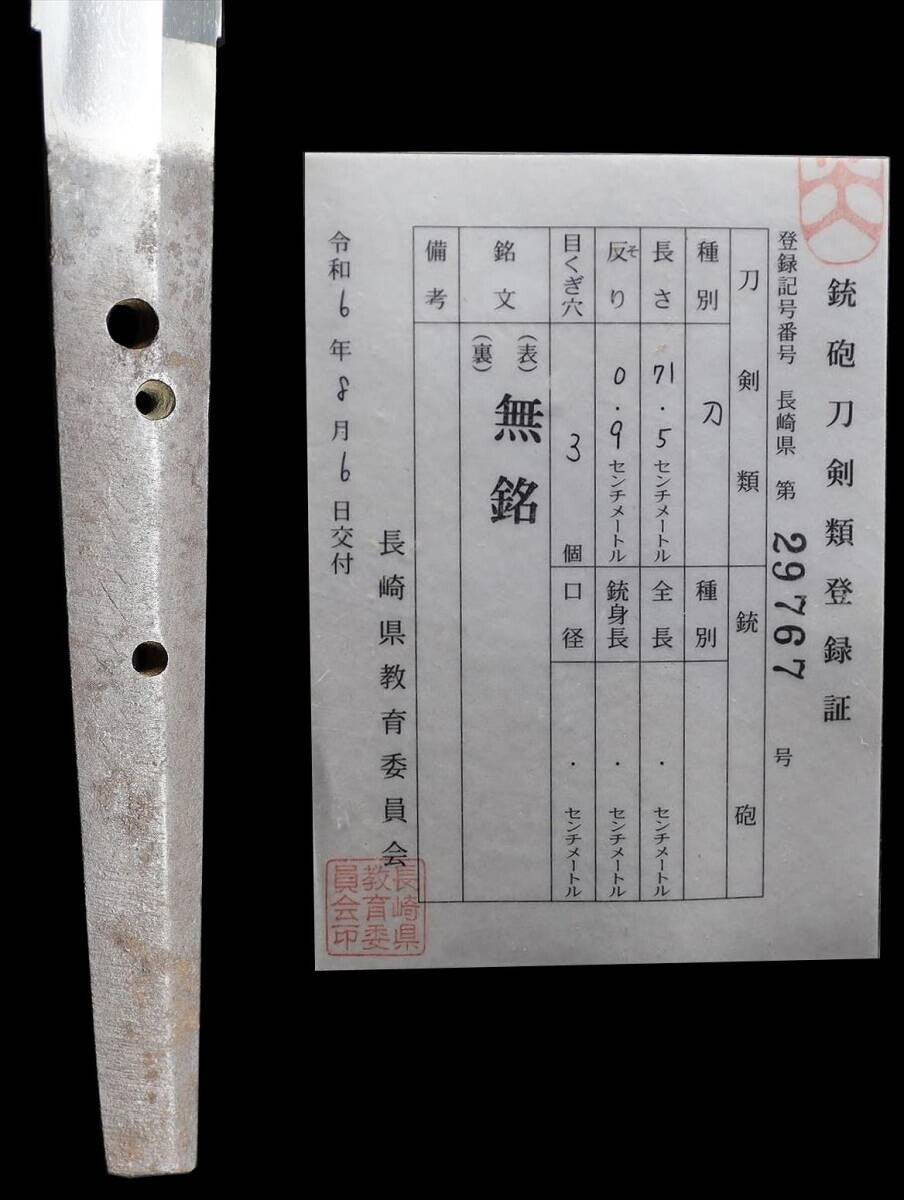 銃砲刀剣類登録証
登録記号番号 長崎県 第 29767 号
刀剣類 銃砲
種別 刀 種別
長さ 71.5センチメートル 全長 ・センチメートル
反り 0.9センチメートル 銃身長 ・センチメートル
そ
目くぎ穴 3個 口径 ・センチメートル
銘文 (表) 無銘
(裏)
備考
長崎県教育委員会
令和6年8月6日交付
長崎県
教育委
員会印